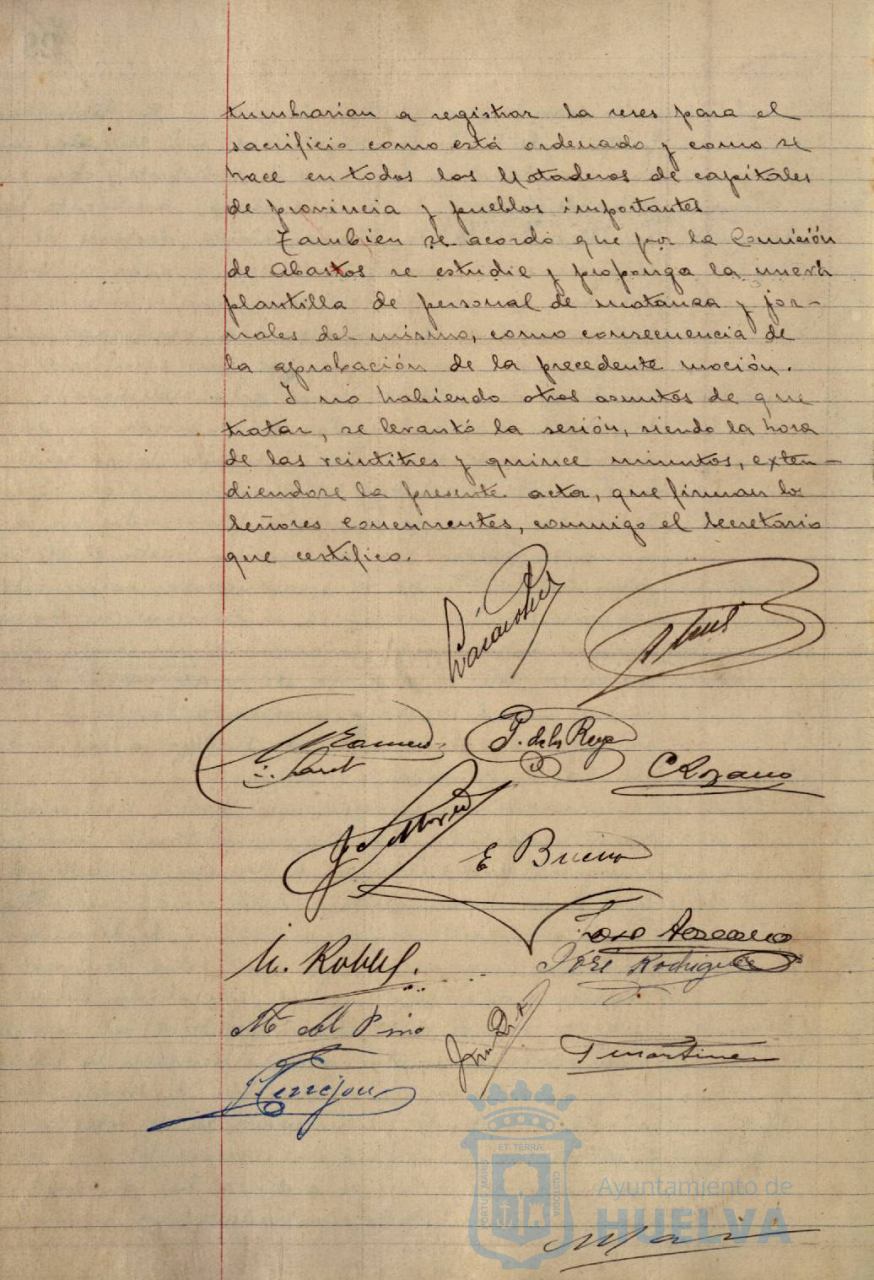 tumbrarian a registrar la reses para el
sacrificio como está ordenado y como se
hace en todos los Mataderos de capitales
de provincia y pueblos importantes
Tambien se acordó que por la Comición
de Abastos se estudie y proponga la nueva
plantilla de personal de matanza y jor-
nales del mismo, como consecuencia de
la aprobación de la precedente moción.
Y no habiendo otros asuntos de que
tratar, se levantó la sesión, siendo la hora
de las veintitres y quince minutos, exten-
diendose la presente acta, que firman lo
Señores concurrentes, conmigo el Secretario
que certifico.
P. de la
C Lozano
E Bueno
M. Robles.
José Rodriguez
M del Pino
T Martinez
Terrejon
ET TERRA
Ayuntamiento de
HUELVA